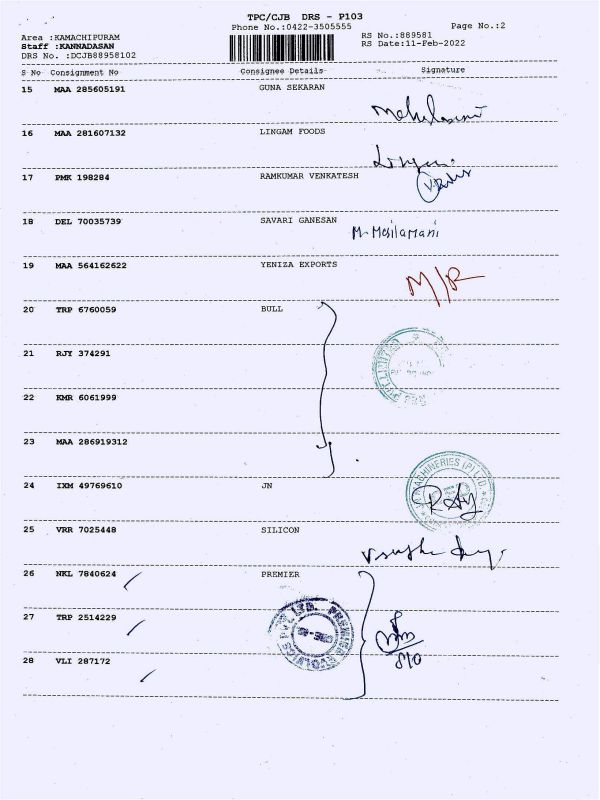 TPC/CJB DRS - P103
Phone No.:0422-3505555
Page No.:2
Area :KAMACHIPURAM
RS No.:889581
Staff :KANNADASAN
RS Date:11-Feb-2022
DRS No. :DCJB88958102
S No Consignment No Consignee Details Signature
15 MAA 285605191 GUNA SEKARAN
16 MAA 281607132 LINGAM FOODS
17 PMK 198284 RAMKUMAR VENKATESH
18 DEL 70035739 SAVARI GANESAN
M. Mosilamani
19 MAA 564162622 YENIZA EXPORTS
M/R
20 TRP 6760059 BULL
21 RJY 374291
22 KMR 6061999
23 MAA 286919312
24 IXM 49769610 JN
MACHINERIES (P) LTD.
25 VRR 7025448 SILICON
26 NKL 7840624 PREMIER
27 TRP 2514229
PVT. LTD. PREMIER
28 VLI 287172